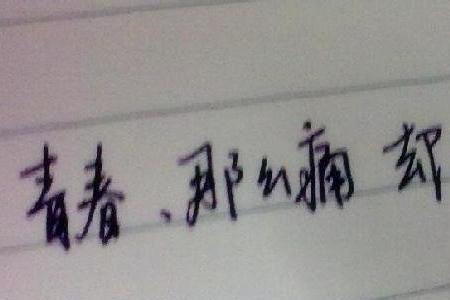 青春、那么痛 却